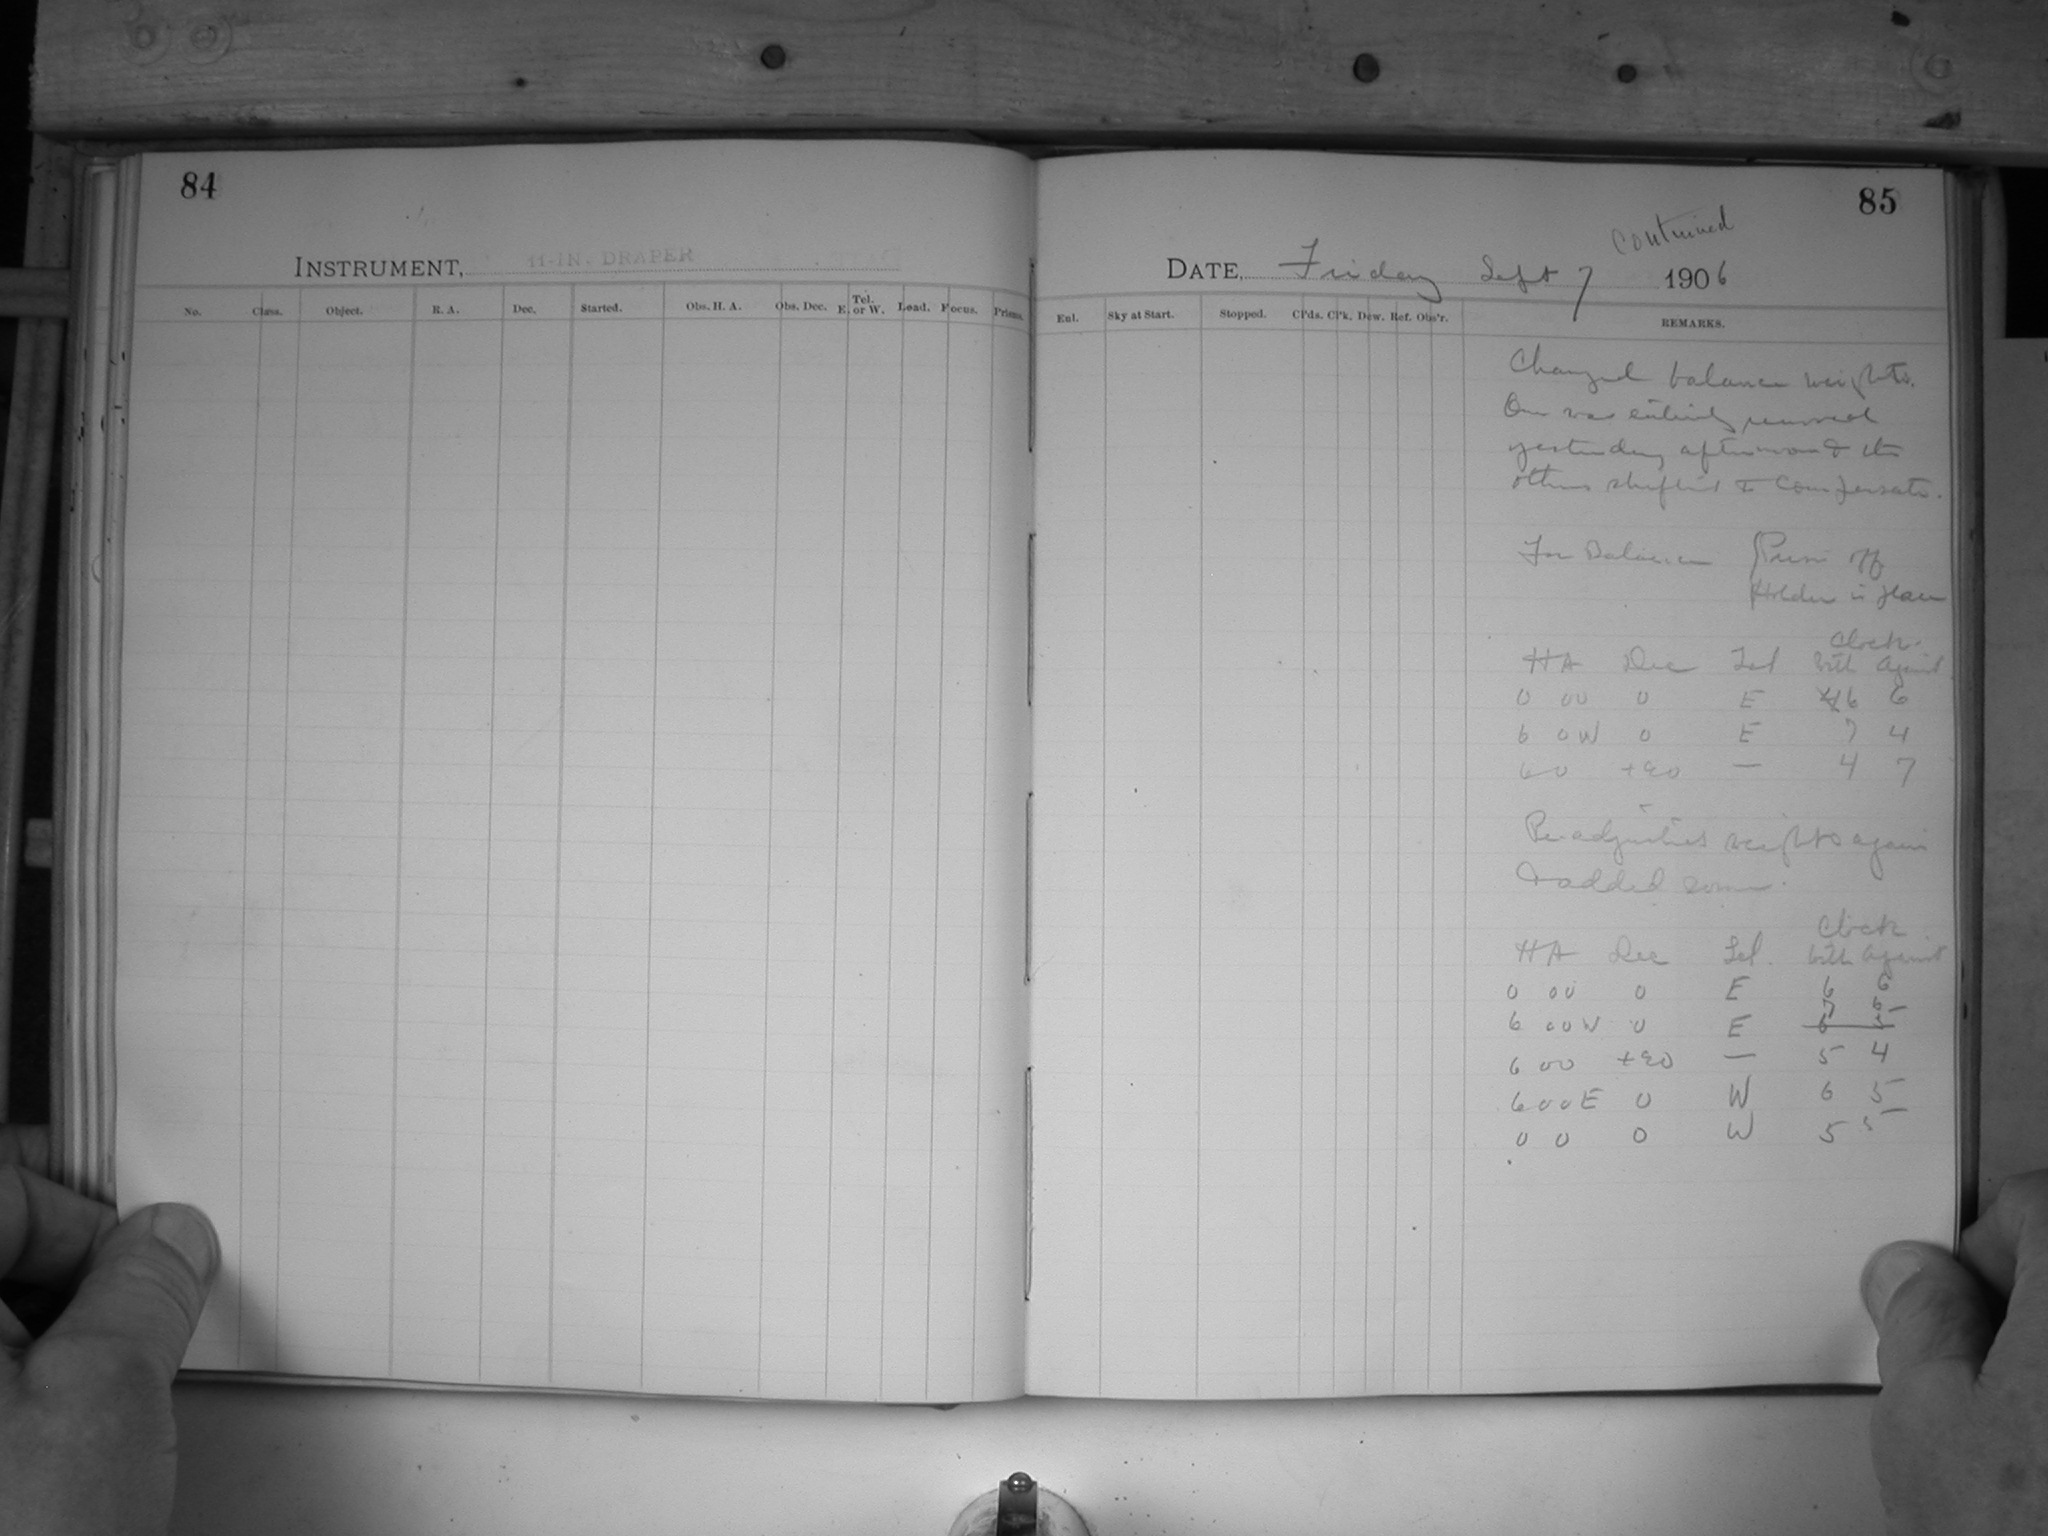 84
INSTRUMENT, 11-IN. DRAPER
No. Class. Object. R. A. Dec. Started. Obs. H. A. Obs. Dec. Tel. E. or W. Load. Focus. Prisms.
85
continued
DATE, Friday Sept 7 1906
Enl. Sky at Start. Stopped. Cl'ds. Cl'k. Dew. Ref. Obs'r. REMARKS.
Changed balance weights.
One was entirely removed
yesterday afternoon & the
others shifted to compensate.
For Balance { Prism off
Holder in place
Clock
HA Dec Tel With Against
0 00 0 E 6 6
6 0W 0 E 7 4
6 0 +90 — 4 7
Re-adjusted weights again
& added some.
Clock
HA Dec Tel. With Against
0 00 0 E 6 6
7 6
6 00W 0 E 6 5
6 00 +90 — 5 4
6 00E 0 W 6 5
0 0 0 W 5 5